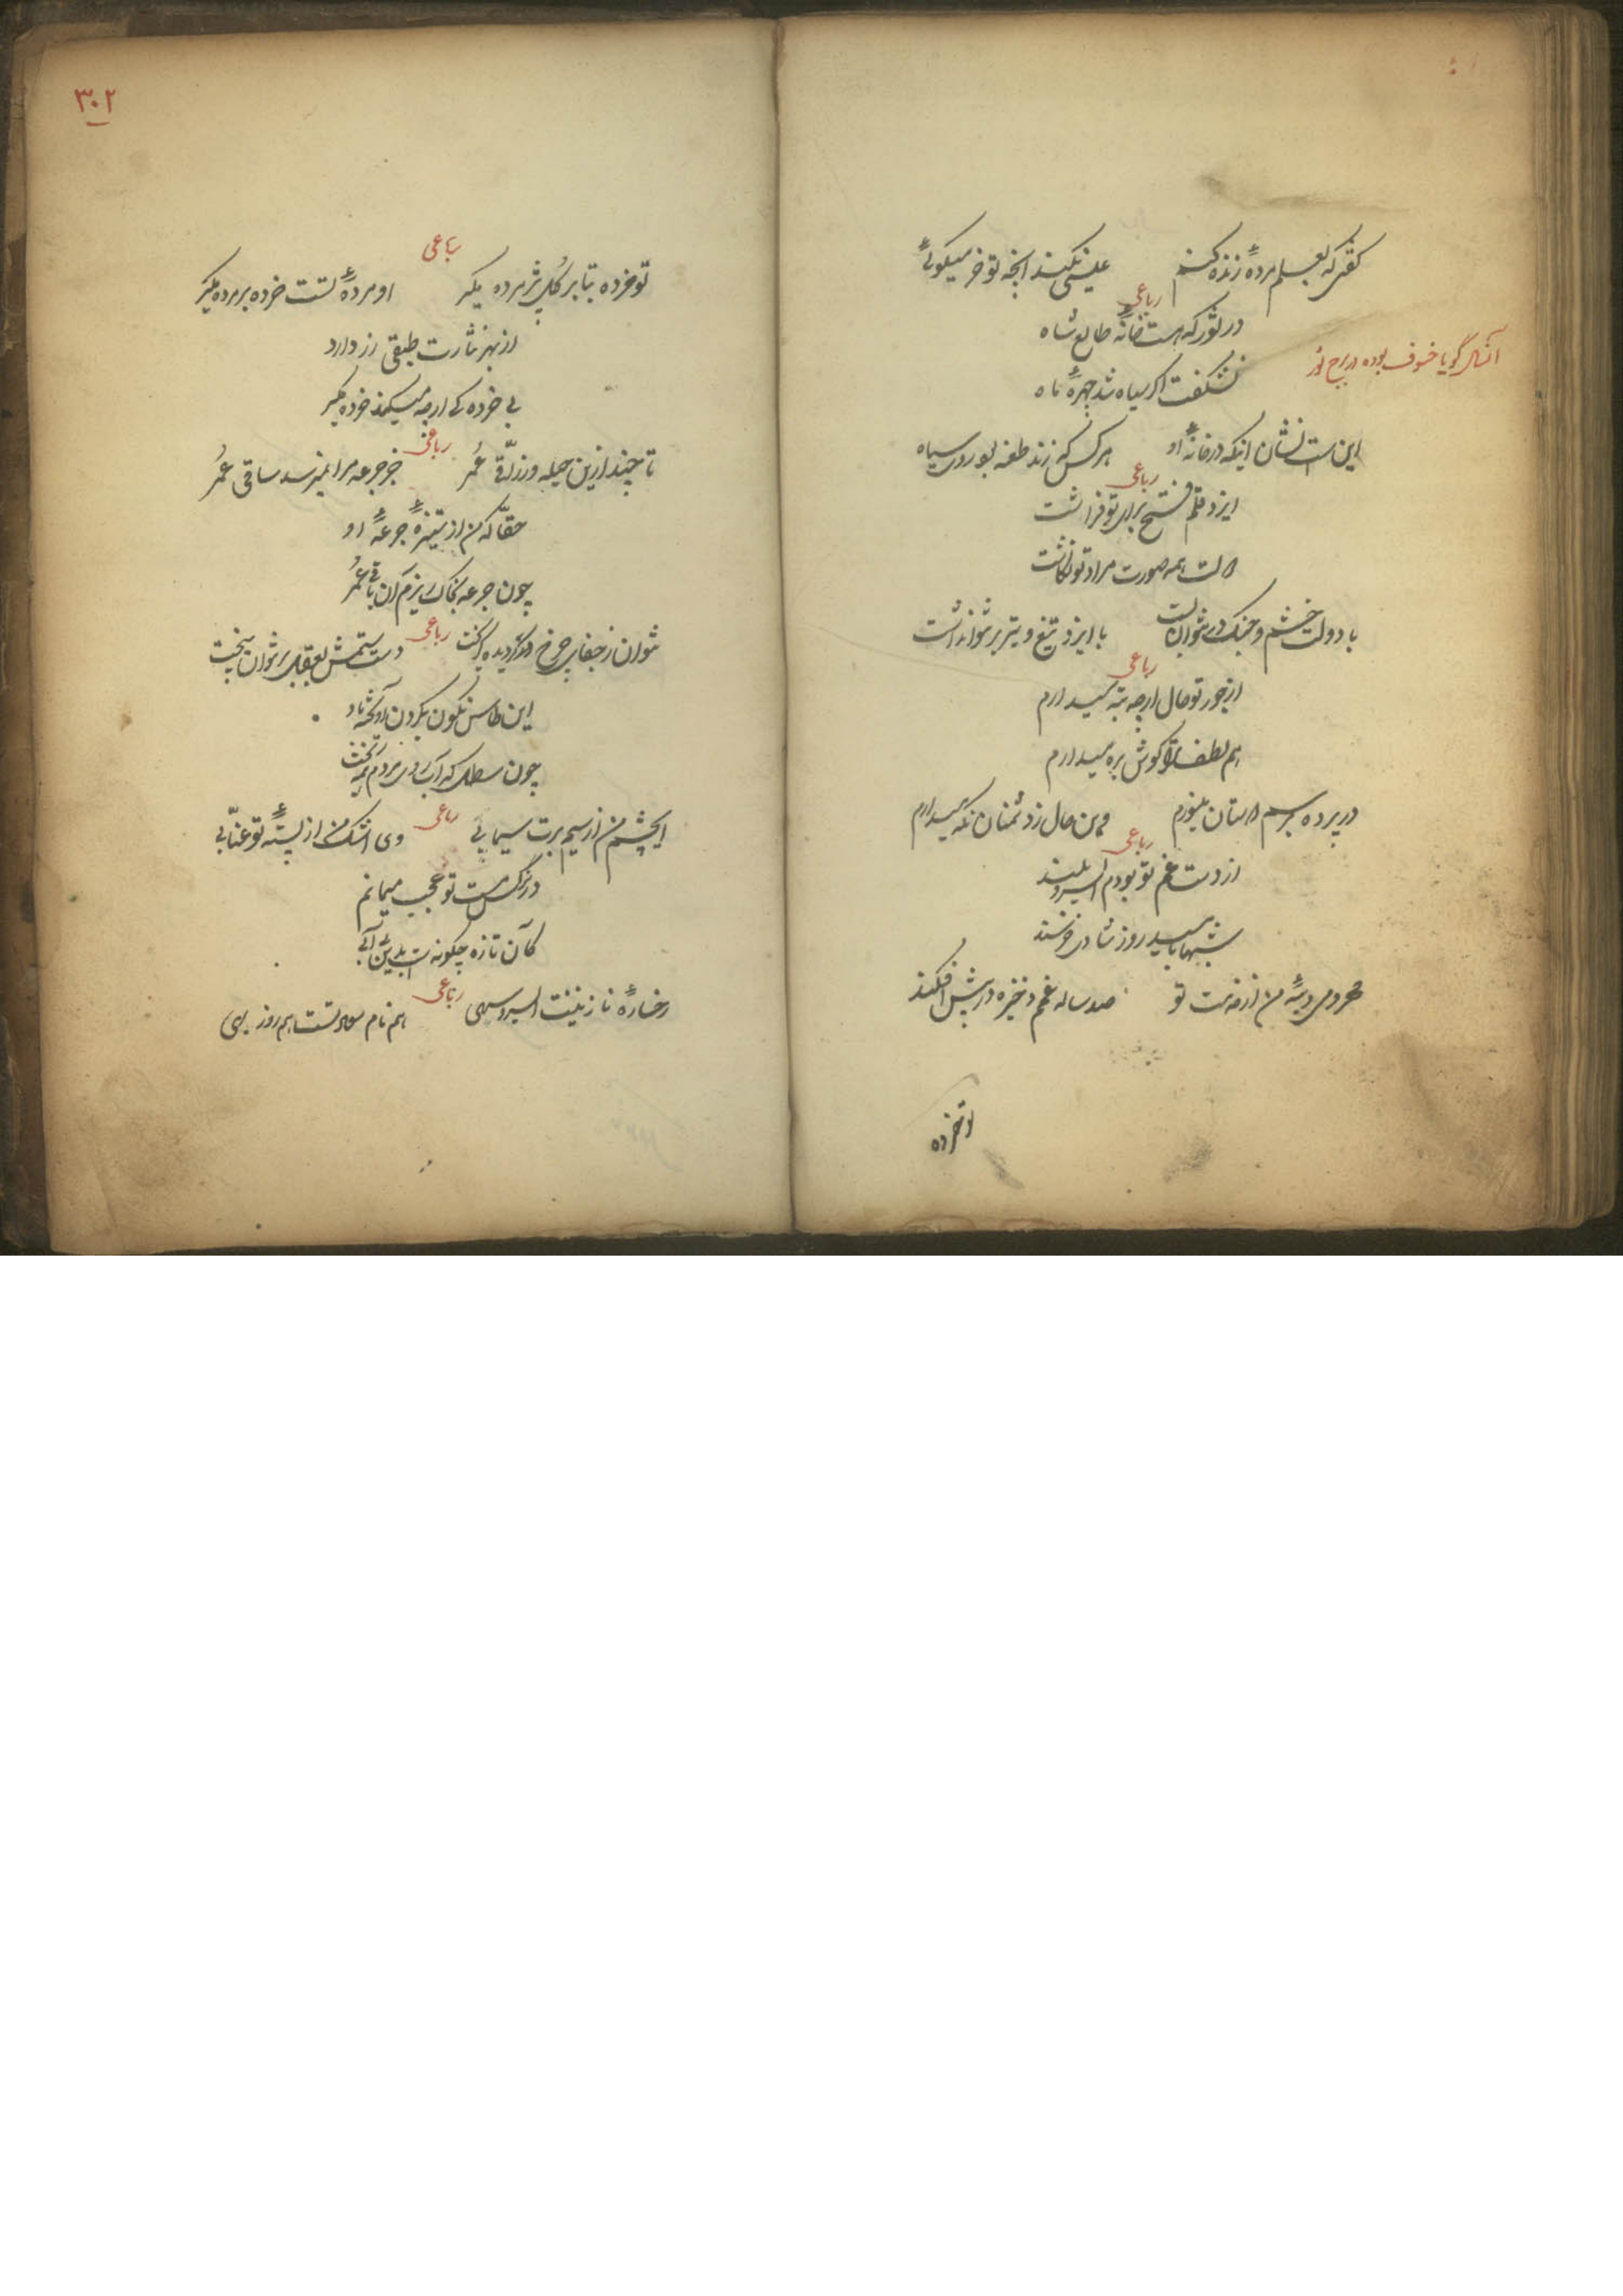 گفتی که بعلم مرده زنده کنم عیسی نکند انچه تو خر میگوئی
رباعی
در ثور که هست خانه طالع شاه
آنسال گویا خسوف بوده در برج ثور
نشگفت اگر سیاه شد چهره ماه
این است نشان اینکه در خانه او هر کس که زند طعنه بود روی سیاه
رباعی
ایزد علم فتح برای تو فراشت
همه صورت مراد تو نگاشت
با دولت خشم و جنک در نتوان بست با ایزد تیغ و تیر بر نتوان داشت
رباعی
از جور تو حال ارچه تبه میدارم
هم لطف ترا گوش بره میدارم
در پرده برسم دستان میخورم وین حال ز دشمنان نگه میدارم
رباعی
از دست غم تو بودم ای سرو بلند
شبها بامید روز شادی خرسند
محرومی من از خدمت تو صد ساله غم ذخیره در پیش افکند
تو خرده
۳۰۲
رباعی
تو خرده بتا بر گل پژمرده مگیر او مرده تست خرده بر مرده مگیر
از بهر نثارت طبقی زر دارد
بی خرده کی ارچه میکند خرده مگیر
رباعی
تا چند ازین حیله و زراقی عمر جز جرعه مرا نمیرسد ساقی عمر
حقا که من از ستیزه جرعه او
چون جرعه بخاک ریزم آن باقی عمر
رباعی
نتوان ز جفای چرخ دستش بعقیله بر نتوان پیخت
این طاس نگون بگردن آویخته باد
چون سطل که آب روی مردم همه ریخت
رباعی
ای چشم من از سیم برت سیمابی وی اشک من از پسته تو عنابی
در نرگس مست تو عجب میمانم
کان تازه چگونه است بدین بی آبی
رباعی
رخساره نازنینت ای سرو سهی هم نام تست هم روز بهی